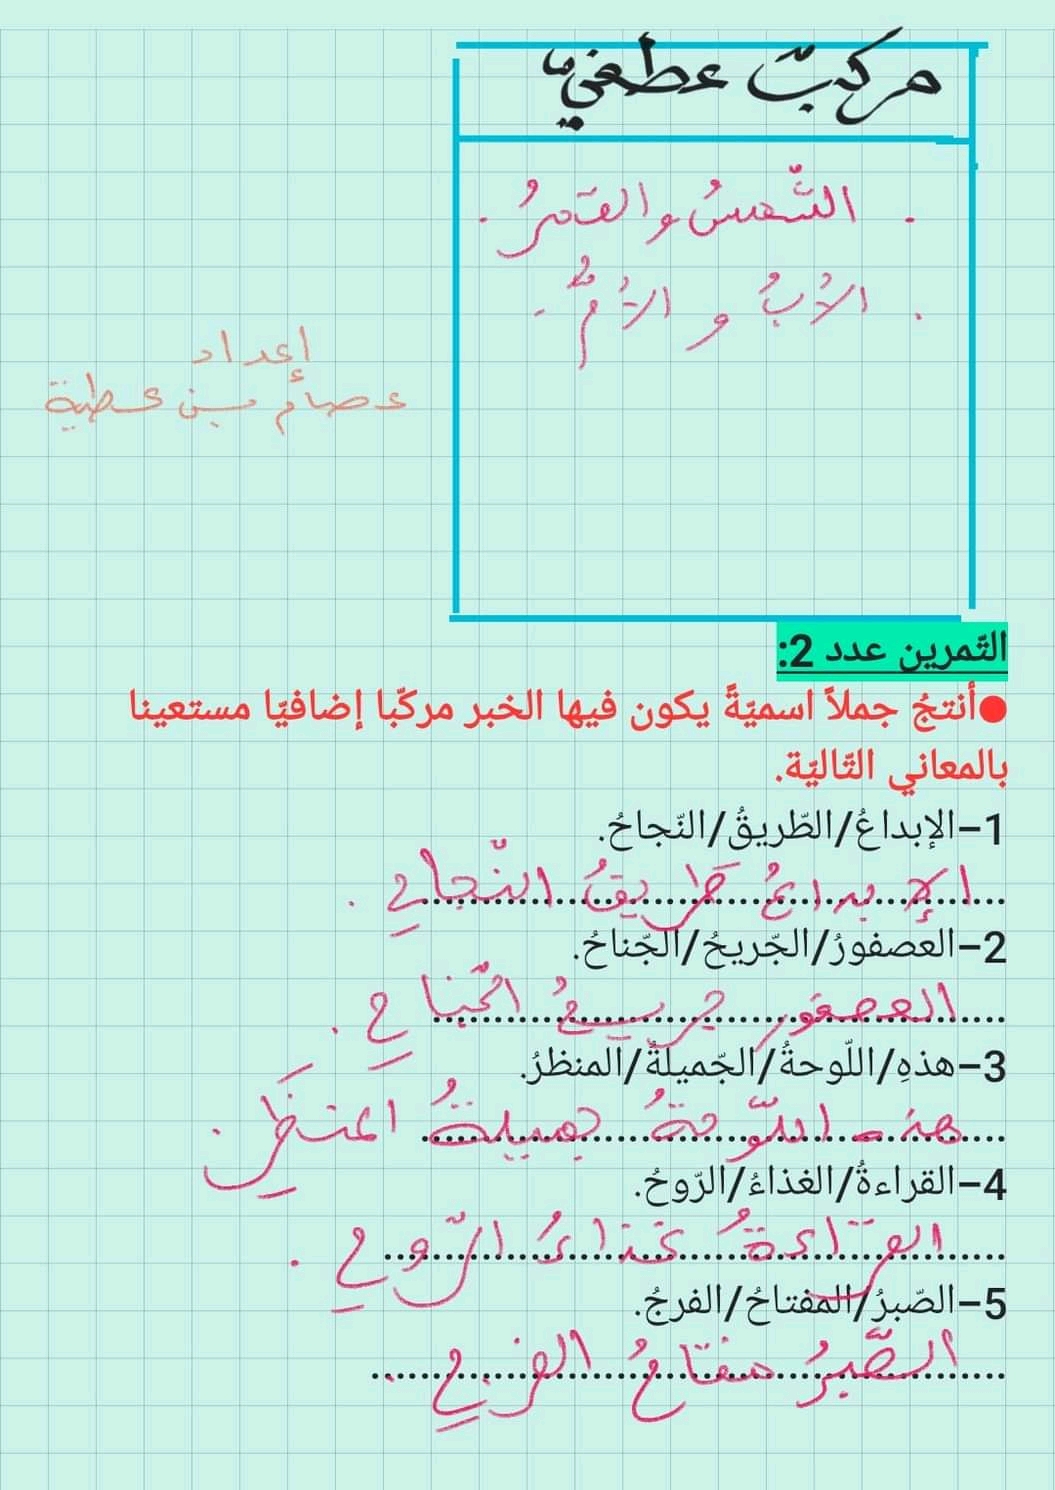 مركبّ عطفيّ
. الشّمسُ والقمرُ .
. الأبُ و الأمُّ .
إعداد
عصام بن عطية
التّمرين عدد 2:
●أنتجُ جملاً اسميّةً يكون فيها الخبر مركّبا إضافيّا مستعينا
بالمعاني التّاليّة.
1–الإبداعُ/الطّريقُ/النّجاحُ.
الإبداعُ طَريقُ النّجاحِ .
2–العصفورُ/الجّريحُ/الجّناحُ.
العصفور جريحُ الجّناحِ .
3–هذهِ/اللّوحةُ/الجّميلةُ/المنظرُ.
هذه اللّوحةُ جميلةُ المنظَرِ .
4–القراءةُ/الغذاءُ/الرّوحُ.
القرَاءةُ غذاءُ الرّوحِ .
5–الصّبرُ/المفتاحُ/الفرجُ.
الصّبرُ مفتاحُ الفرجِ .